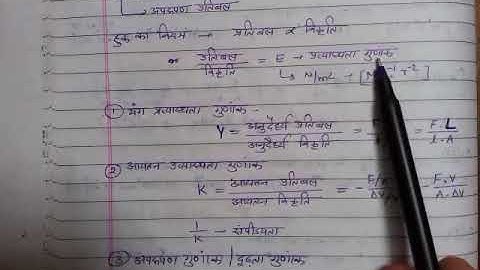 अपरूपण प्रतिबल
हुक का नियम → प्रतिबल ∝ विकृति
प्रतिबल / विकृति = E → प्रत्यास्थता गुणांक
↳ N/m² →
① यंग प्रत्यास्थता गुणांक -
Y = अनुदैर्ध्य प्रतिबल / अनुदैर्ध्य विकृति = = F.L / l.A
② आयतन प्रत्यास्थता गुणांक
K = आयतन प्रतिबल / आयतन विकृति = - = F.V / A.ΔV
1/K → संपीड्यता
③ अपरूपण गुणांक / दृढ़ता गुणांक